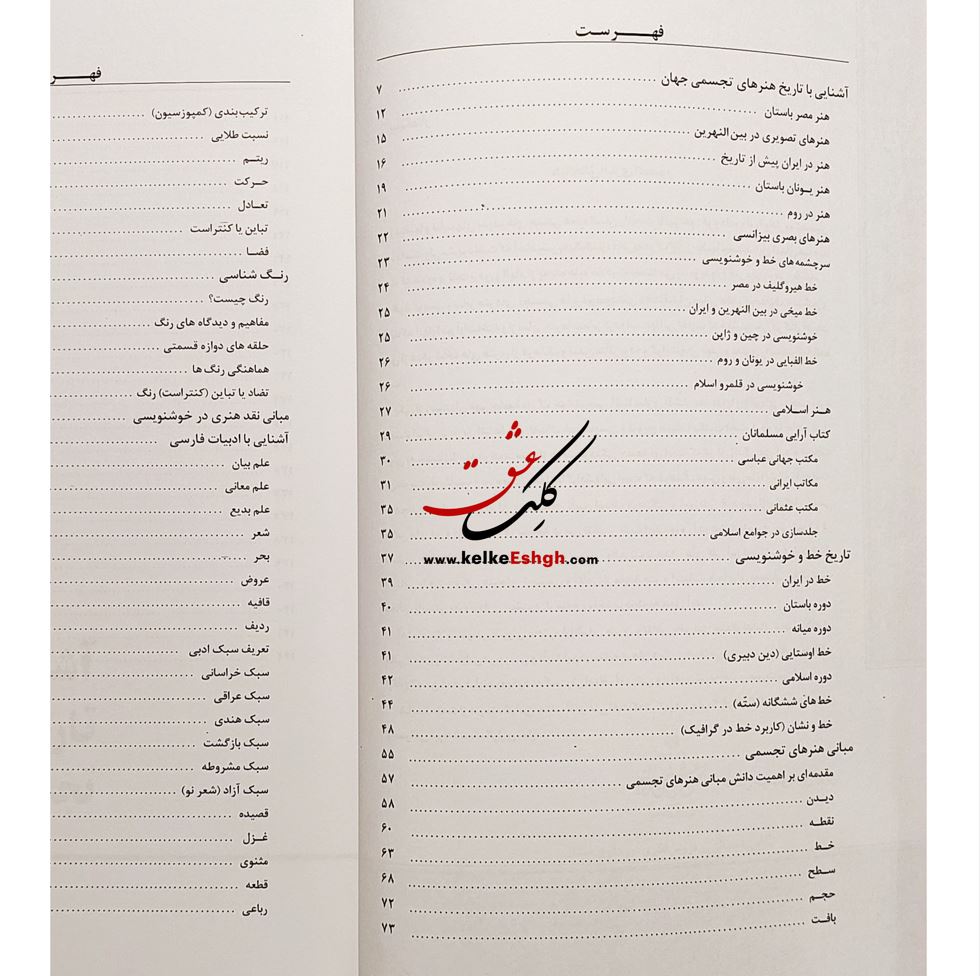 فهـــرســت
آشنایی با تاریخ هنرهای تجسمی جهان ۷
هنر مصر باستان ۱۲
هنرهای تصویری در بین النهرین ۱۵
هنر در ایران پیش از تاریخ ۱۶
هنر یـونان باستان ۱۹
هنر در روم ۲۱
هنرهای بصری بیزانسی ۲۲
سرچشمه‌های خط و خوشنویسی ۲۳
خط هیروگلیف در مصر ۲۴
خط میخی در بین النهرین و ایران ۲۵
خوشنویسی در چین و ژاپن ۲۵
خط الفبایی در یونان و روم ۲۶
خوشنویسی در قلمرو اسلام ۲۶
هـنر اسـلامی ۲۷
کتاب آرایی مسلمانان ۲۹
مکتب جهانی عباسی ۳۰
مکاتب ایرانی ۳۱
مکتب عثمانی ۳۵
جلدسازی در جوامع اسلامی ۳۵
تاریخ خط و خوشنویسی ۳۷
خط در ایران ۳۹
دوره باستان ۴۰
دوره میانه ۴۱
خط اوستایی (دین دبیری) ۴۱
دوره اسلامی ۴۲
خط‌های ششگانه (ستّه) ۴۴
خط و نشان (کاربرد خط در گرافیک) ۴۸
مبانی هنرهای تجسمی ۵۵
مقدمه‌ای بر اهمیت دانش مبانی هنرهای تجسمی ۵۷
دیـدن ۵۸
نقطـه ۶۰
خـط ۶۳
سـطح ۶۸
حجـم ۷۲
بافـت ۷۳
کلک عشق
www.kelkeEshgh.com
فهـــر
ترکیب‌بندی (کمپوزسیون)
نسبت طلایی
ریتـم
حـرکت
تعـادل
تباین یا کنتراست
فضـا
رنـگ شناسی
رنگ چیست؟
مفاهیم و دیدگاه های رنگ
حلقه های دوازه قسمتی
هماهنگی رنگ ها
تضاد یا تباین (کنتراست) رنگ
مبانی نقد هنری در خوشنویسی
آشنایی با ادبیات فارسی
علم بیان
علم معانی
علم بدیع
شعر
بحر
عروض
قافیه
ردیف
تعریف سبک ادبی
سبک خراسانی
سبک عراقی
سبک هندی
سبک بازگشت
سبک مشروطه
سبک آزاد (شعر نو)
قصیده
غـزل
مثنوی
قطعه
رباعی